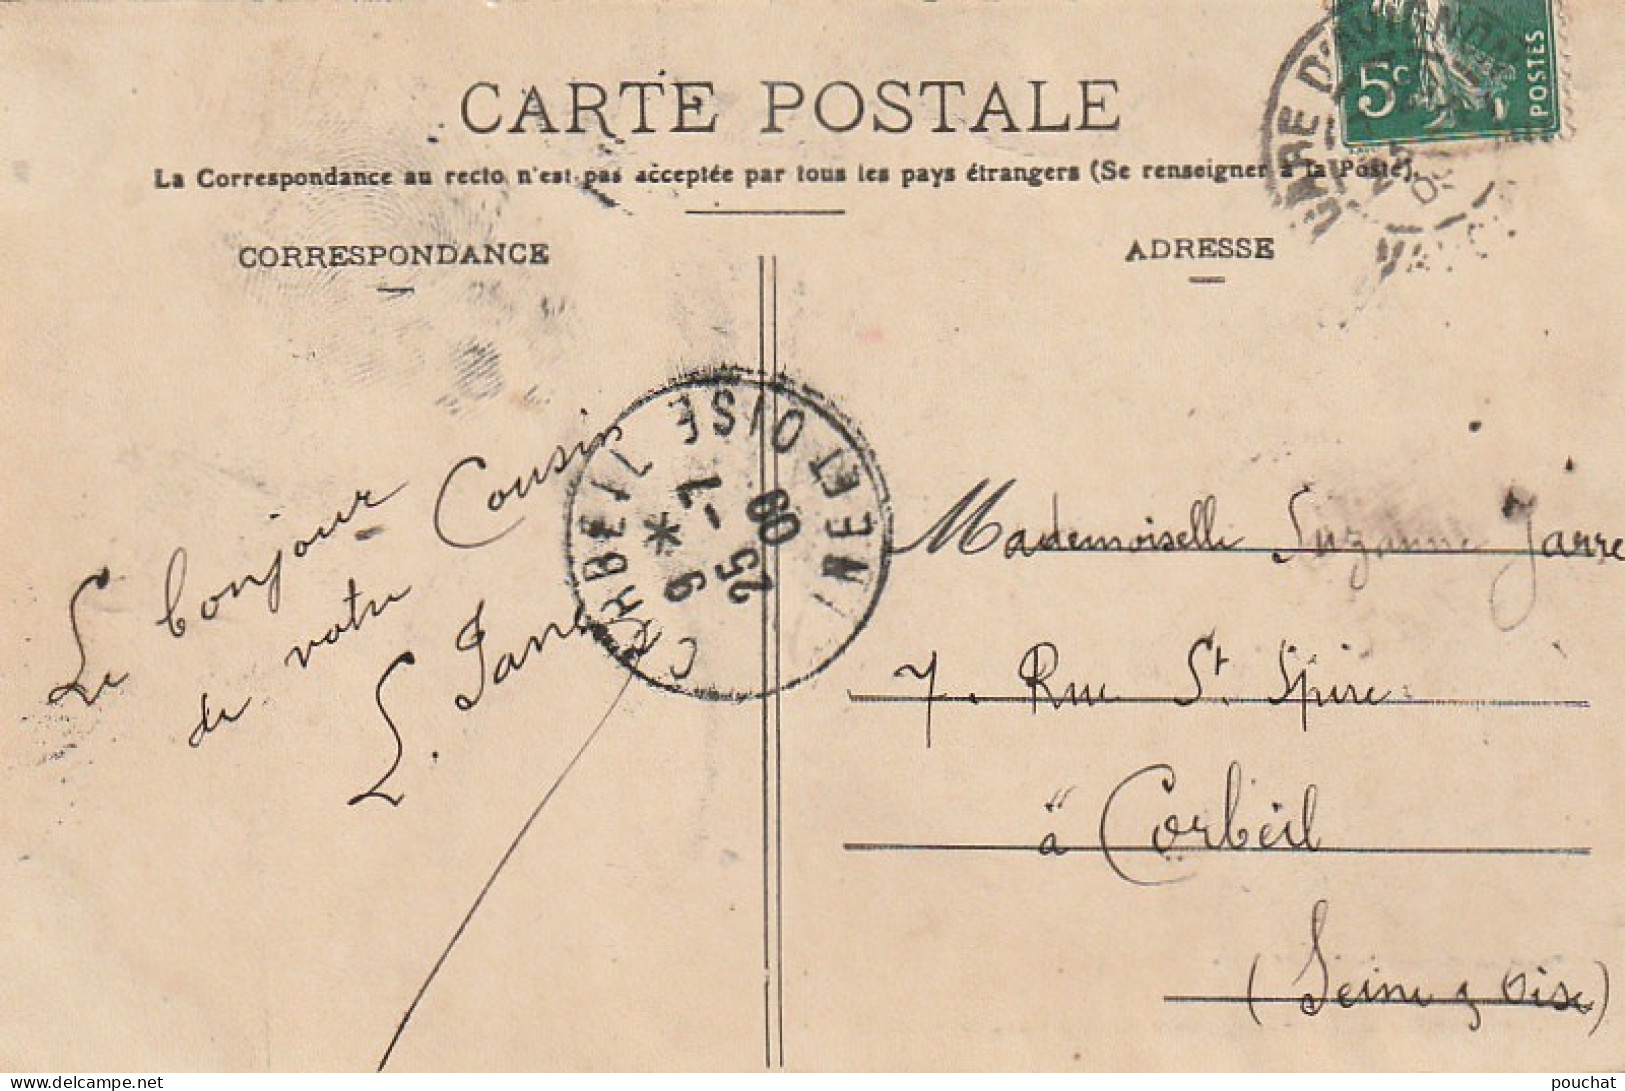 CARTE POSTALE
La Correspondance au recto n'est pas acceptée par tous les pays étrangers (Se renseigner à la Poste).
CORRESPONDANCE
ADRESSE
5c
POSTES
GARE D'AVIGNON
Le bonjour
de votre Cousin
L. Jarre
CORBEIL
SEINE ET OISE
7 - 9
25
09
Mademoiselle Suzanne Jarre
7. Rue St. Spire
à Corbeil
(Seine & Oise)
delcampe.net
pouchat